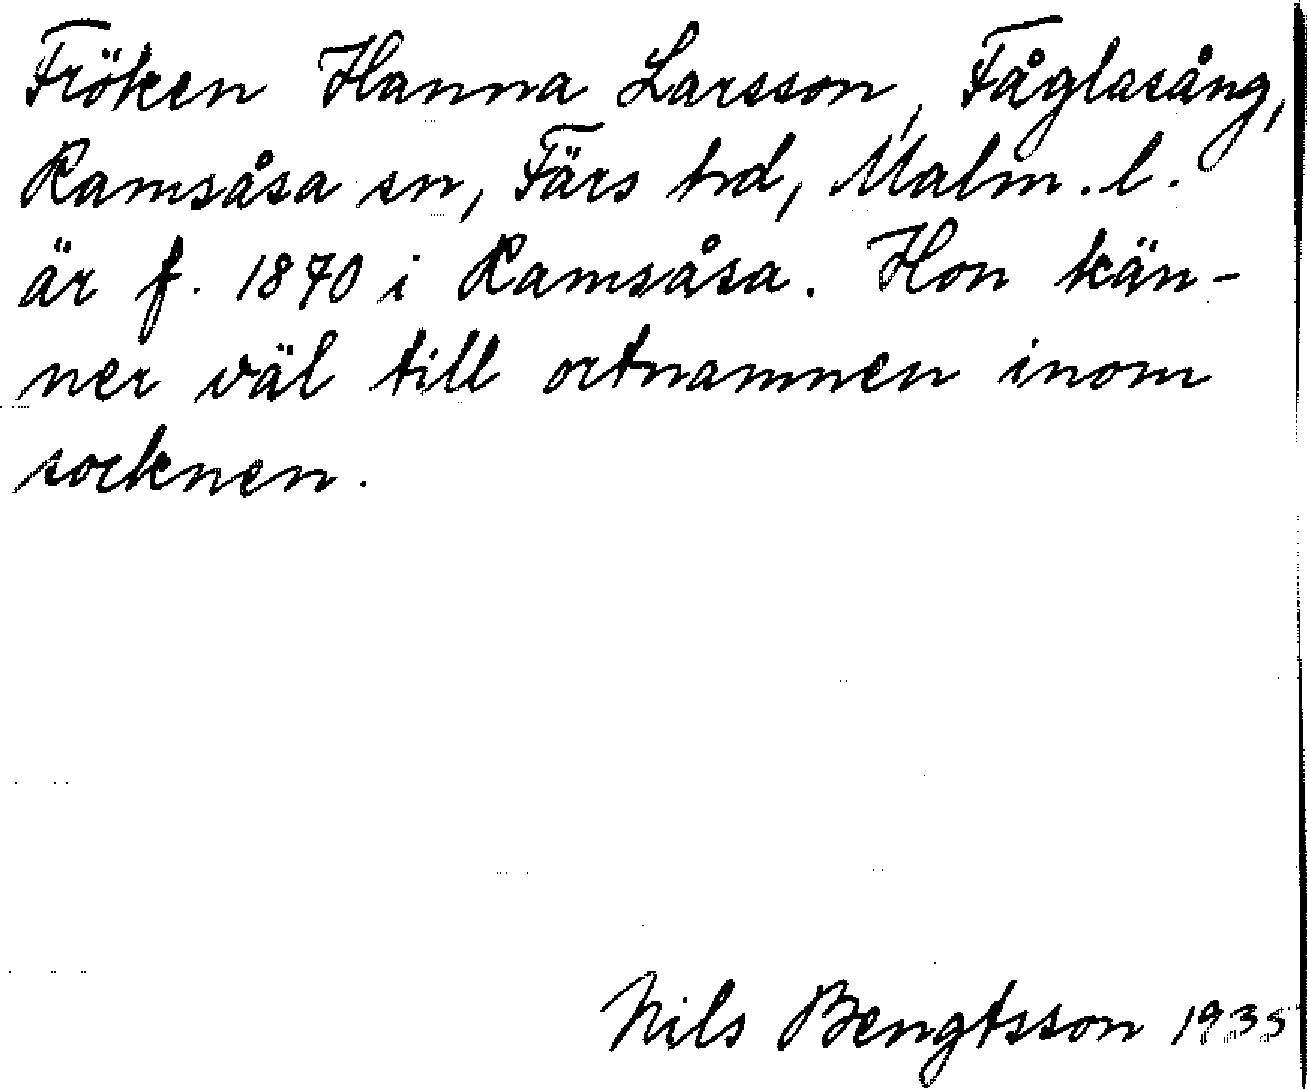 Fröken Hanna Larsson, Fåglasång,
Ramsåsa sn, Färs hd, Malm. l.
är f. 1870 i Ramsåsa. Hon kän-
ner väl till ortnamnen inom
socknen.
Nils Bengtsson 1935